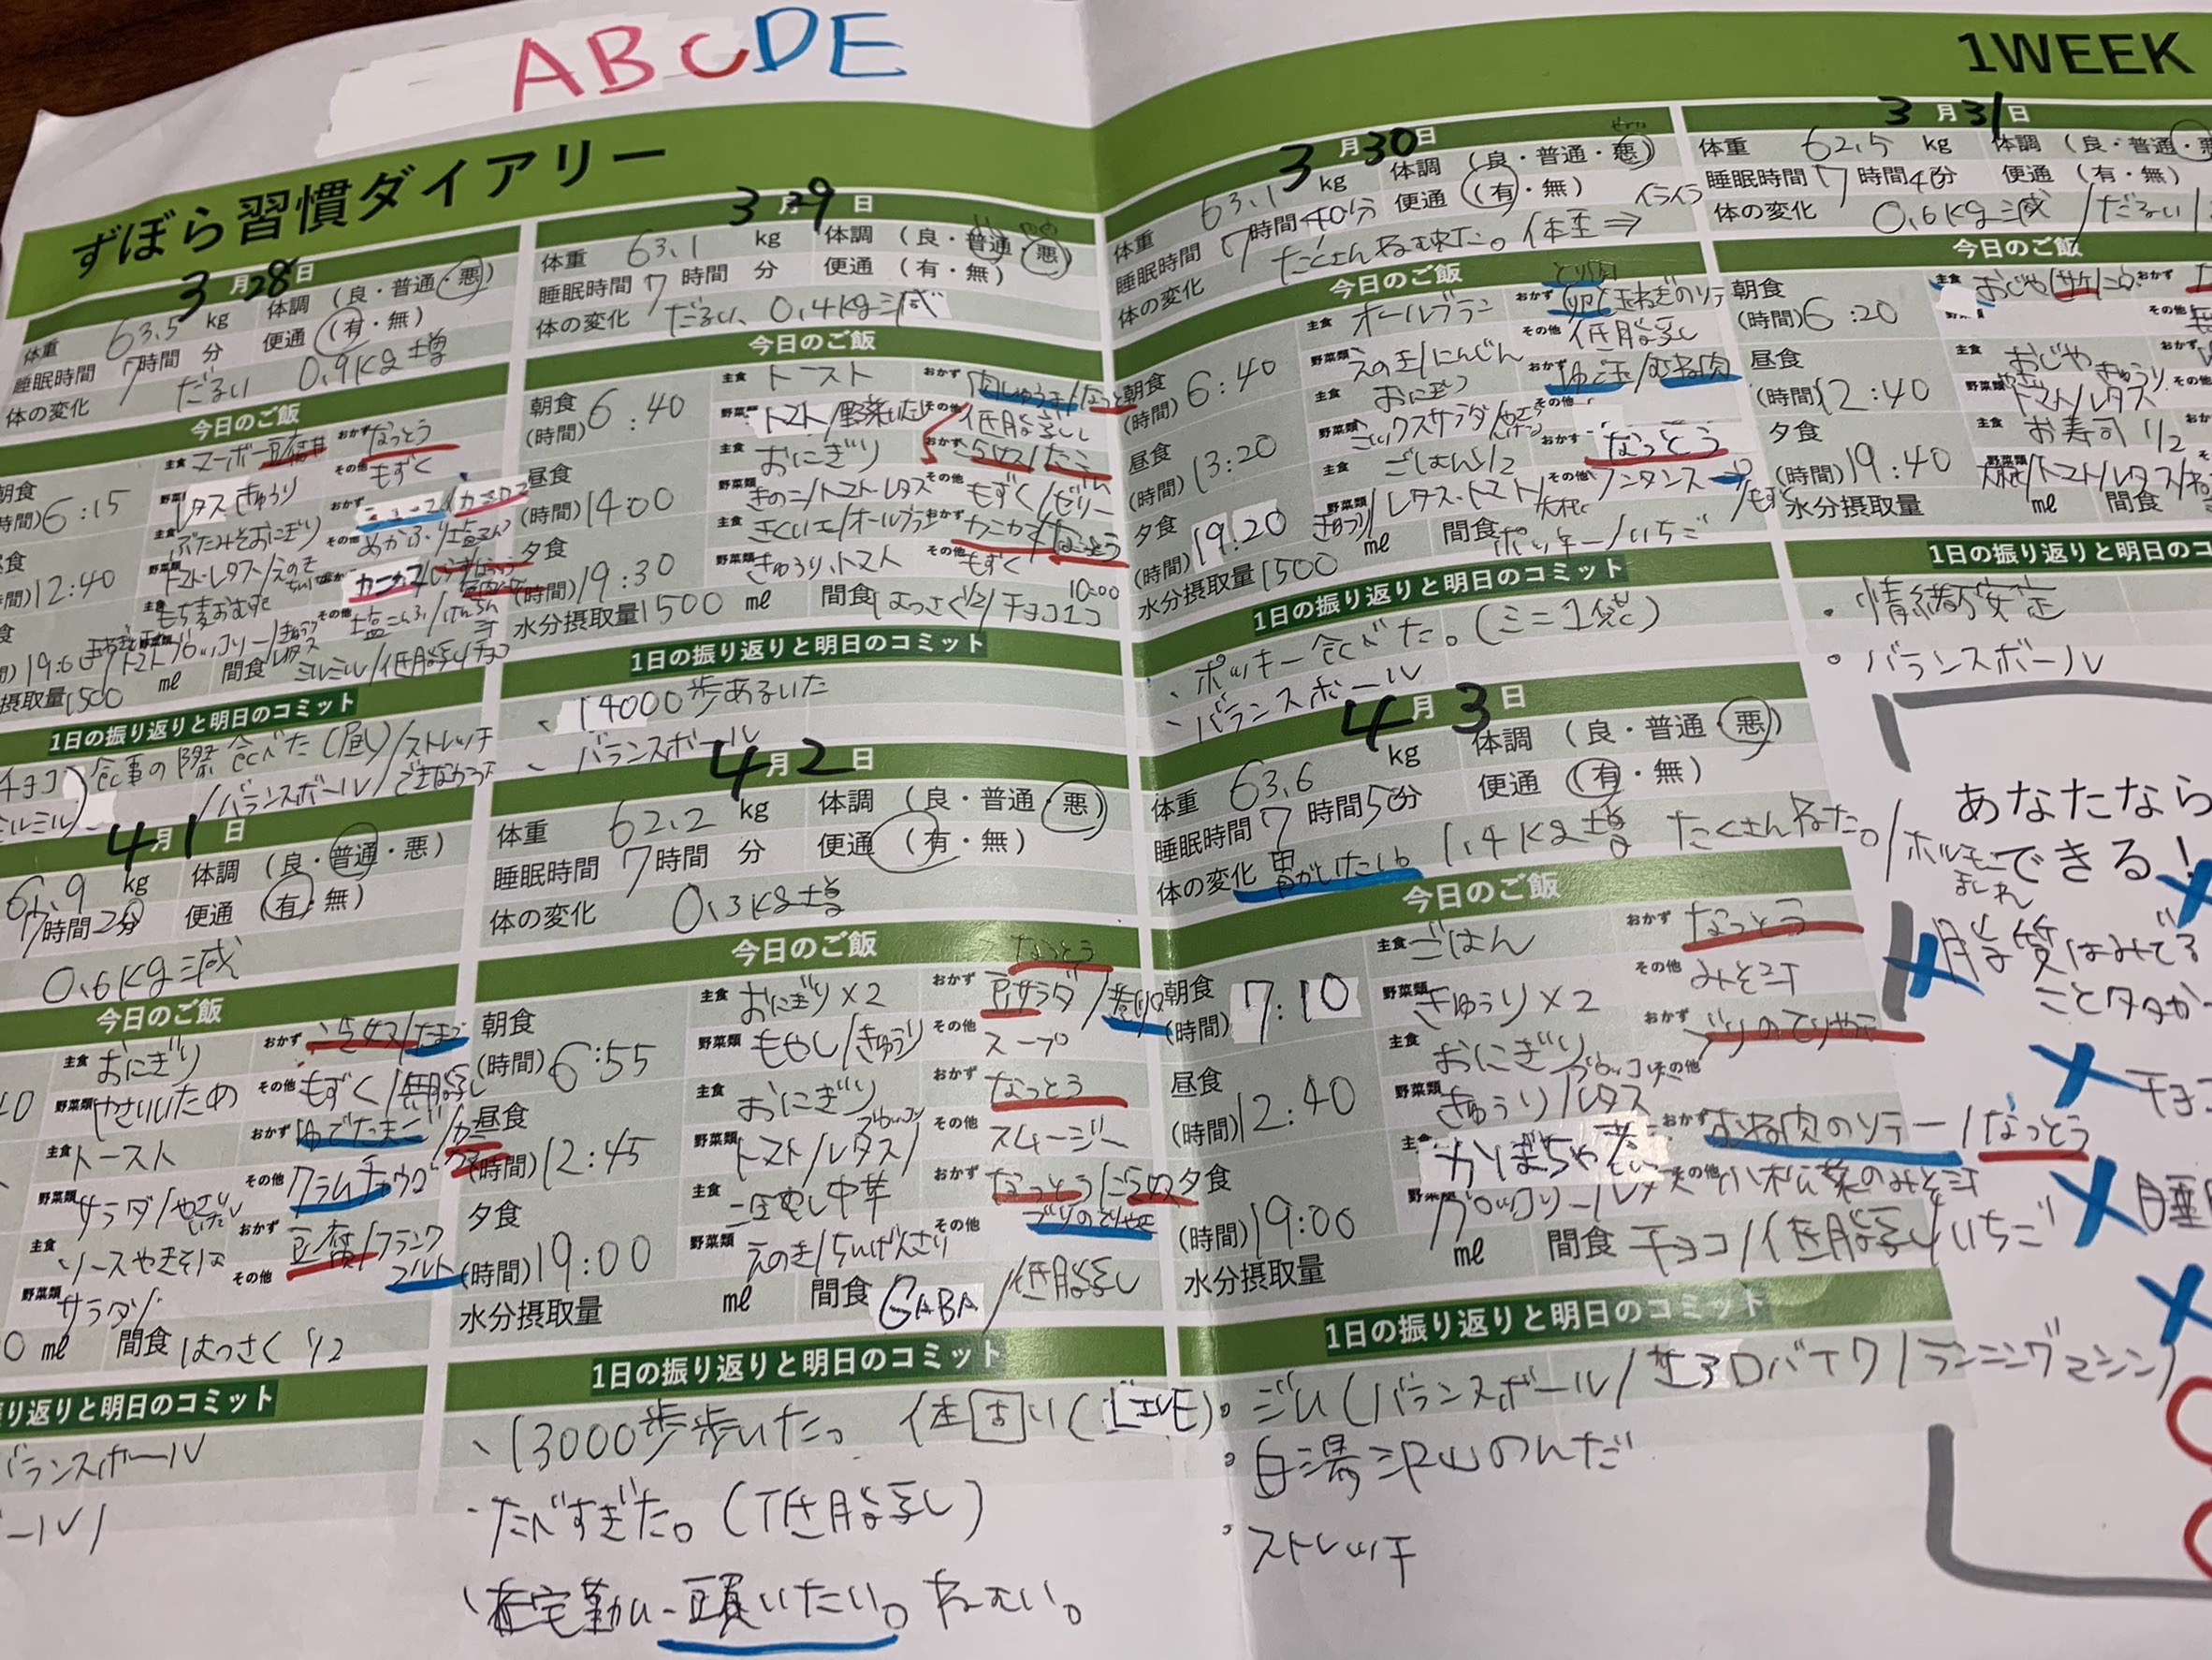 ABCDE
1WEEK
ずぼら習慣ダイアリー
3月28日
体重 63.5 kg 体調 (良・普通・悪)
睡眠時間 7時間 分 便通 (有・無)
体の変化 だるい 0.9kg増
今日のご飯
朝食 主食 マーボー豆腐丼 おかず なっとう
(時間)6:15 野菜類 レタスきゅうり その他 もずく
昼食 主食 ぶたみそおにぎり おかず
(時間)12:40 野菜類 トマト・レタス/えのき その他 めかぶ/塩こんぶ
主食 もち麦おむすび おかず カニカマ
野菜類 トマト/ブロッコリー/きゅうり レタス その他 塩こんぶ/けんちん汁
摂取量1500 ml 間食 ミルミル/低脂乳/チョコ
1日の振り返りと明日のコミット
チョコ 食事の際食べた(昼)/ストレッチできなかった
ミルミル /バランスボール
3月29日
体重 63.1 kg 体調 (良・普通・悪)
睡眠時間 7時間 分 便通 (有・無)
体の変化 だるい、0.4kg減
今日のご飯
朝食 主食 トースト おかず 肉しゅうまい/なっとう
(時間)6:40 野菜類 トマト/野菜いため その他 低脂乳
昼食 主食 おにぎり おかず
(時間)14:00 野菜類 きのこ/トマト・レタス その他 もずく/ゼリー
夕食 主食 きくいも/オールブラン おかず カニカマ/なっとう
(時間)19:30 野菜類 きゅうり、トマト その他 もずく
水分摂取量1500 ml 間食 はっさく1/2/チョコ1コ 10:00
1日の振り返りと明日のコミット
、14000歩あるいた
、バランスボール
3月30日
体重 63.1 kg 体調 (良・普通・悪) イライラ
睡眠時間 7時間40分 便通 (有・無)
体の変化 たくさんねむれた。体重⇒
今日のご飯
朝食 主食 オールブラン おかず とり肉 卵と玉ねぎのソテー
(時間)6:40 野菜類 えのき/にんじん その他 低脂乳
昼食 主食 おにぎり おかず ゆで玉/むね肉
(時間)13:20 野菜類 ミックスサラダ/やさいいため その他
夕食 主食 ごはん1/2 おかず なっとう
(時間)19:20 野菜類 きゅうり/レタス・トマト/大根 その他 フータンスープ/もずく
水分摂取量1500 ml 間食 ポッキー/いちご
1日の振り返りと明日のコミット
、ポッキー食べた。(ミニ1袋)
、バランスボール
3月31日
体重 62.5 kg 体調 (良・普通・悪
睡眠時間7時間40分 便通 (有・無)
体の変化 0.6kg減/だるい
今日のご飯
朝食 主食 おじや(サケ) おかず
(時間)6:20 その他
昼食 主食 おじや おかず
(時間)12:40 野菜類 やさい きゅうり トマト/レタス
夕食 主食 お寿司 1/2
(時間)19:40 野菜類 大根/トマト/レタス
水分摂取量 ml 間食
1日の振り返りと明日の
・情緒不安定
・バランスボール
4月1日
61.9 kg 体調 (良・普通・悪)
7時間20分 便通 (有・無)
0.6kg減
今日のご飯
主食 おにぎり おかず こうや/たまご
野菜類 やさいいため その他 もずく/無脂乳
主食 トースト おかず ゆでたまご/カニカマ
野菜類 サラダ/やさいいため その他 クラムチャウダー
主食 ソースやきそば おかず 豆腐/フランクフルト
野菜類 サラダ その他
0 ml 間食 はっさく 1/2
り返りと明日のコミット
バランスボール
ール/
4月2日
体重 62.2 kg 体調 (良・普通・悪)
睡眠時間 7時間 分 便通 (有・無)
体の変化 0.3kg増
今日のご飯
朝食 主食 おにぎり×2 おかず なっとう 豆サラダ/巻
(時間)6:55 野菜類 もやし/きゅうり その他 スープ
昼食 主食 おにぎり おかず なっとう
(時間)12:45 野菜類 トマト/レタス/ブロッコリ その他 スムージー
夕食 主食 冷し中華 おかず なっとう ブリのてりやき
(時間)19:00 野菜類 えのき/その他
水分摂取量 ml 間食 GABA/低脂乳
1日の振り返りと明日のコミット
、13000歩歩いた。体固い(LIVE)
・たべすぎた。(低脂乳)
、在宅勤ム-頭いたい。ねむい。
4月3日
体重 63.6 kg 体調 (良・普通・悪)
睡眠時間7時間50分 便通 (有・無)
体の変化 胃がいたい。1.4kg増 たくさんねた。/ホルモン
今日のご飯
朝食 主食 ごはん おかず なっとう
(時間)7:10 野菜類 きゅうり×2 その他 みそ汁
昼食 主食 おにぎり おかず ぶりのてりやき
(時間)12:40 野菜類 きゅうり/レタス ブロッコリ その他
夕食 主食 かぼちゃ おかず むね肉のソテー/なっとう
(時間)19:00 野菜類 ブロッコリー/レタス その他 小松菜のみそ汁
水分摂取量 ml 間食 チョコ/低脂乳/いちご
1日の振り返りと明日のコミット
・ジム(バランスボール/エアロバイク/ランニングマシン)
・白湯沢山のんだ
・ストレッチ
あなたなら
できる!
脂質はみてる
ことタタか
チョコ